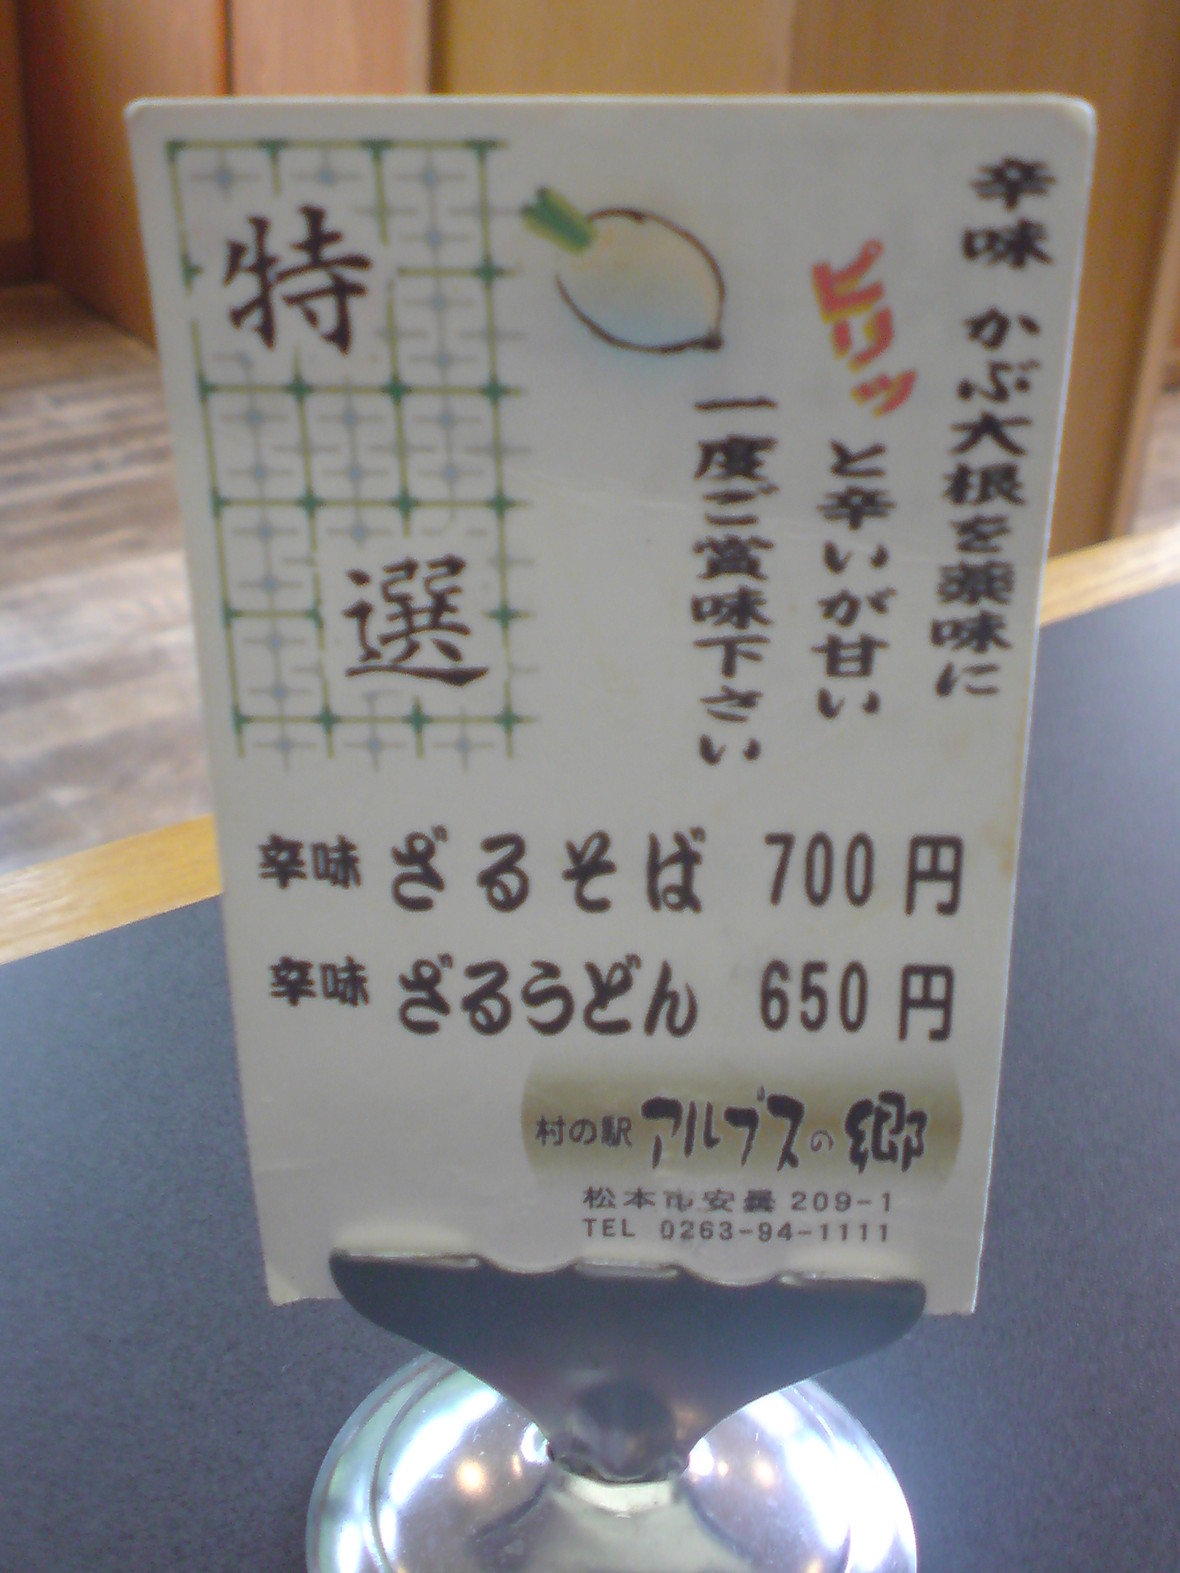 特選
辛味 かぶ大根を薬味に
ピリッと辛いが甘い
一度ご賞味下さい
辛味 ざるそば 700円
辛味 ざるうどん 650円
村の駅 アルプスの郷
松本市安曇 209-1
TEL 0263-94-1111